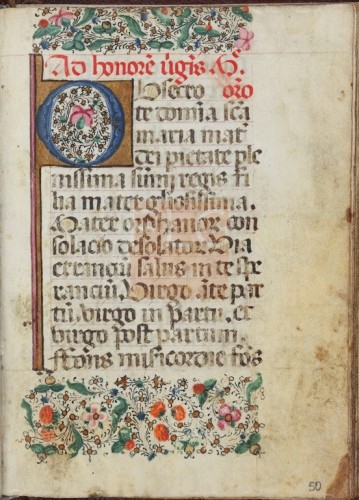 Ad honorē ṽgīs M̄.
Obsecro orō
te domīa scā
maria mat̄
dei pietate ple
nissima sum̄j regis fi
lia mater gl̄iosissima.
Mater orphanor̄ con
solacio desolator̄ Via
errancīu salus in te spe
rancīu. Virgo āte par
tū. virgo in partu. et
virgo post partum.
ffons misericordie fōs
50